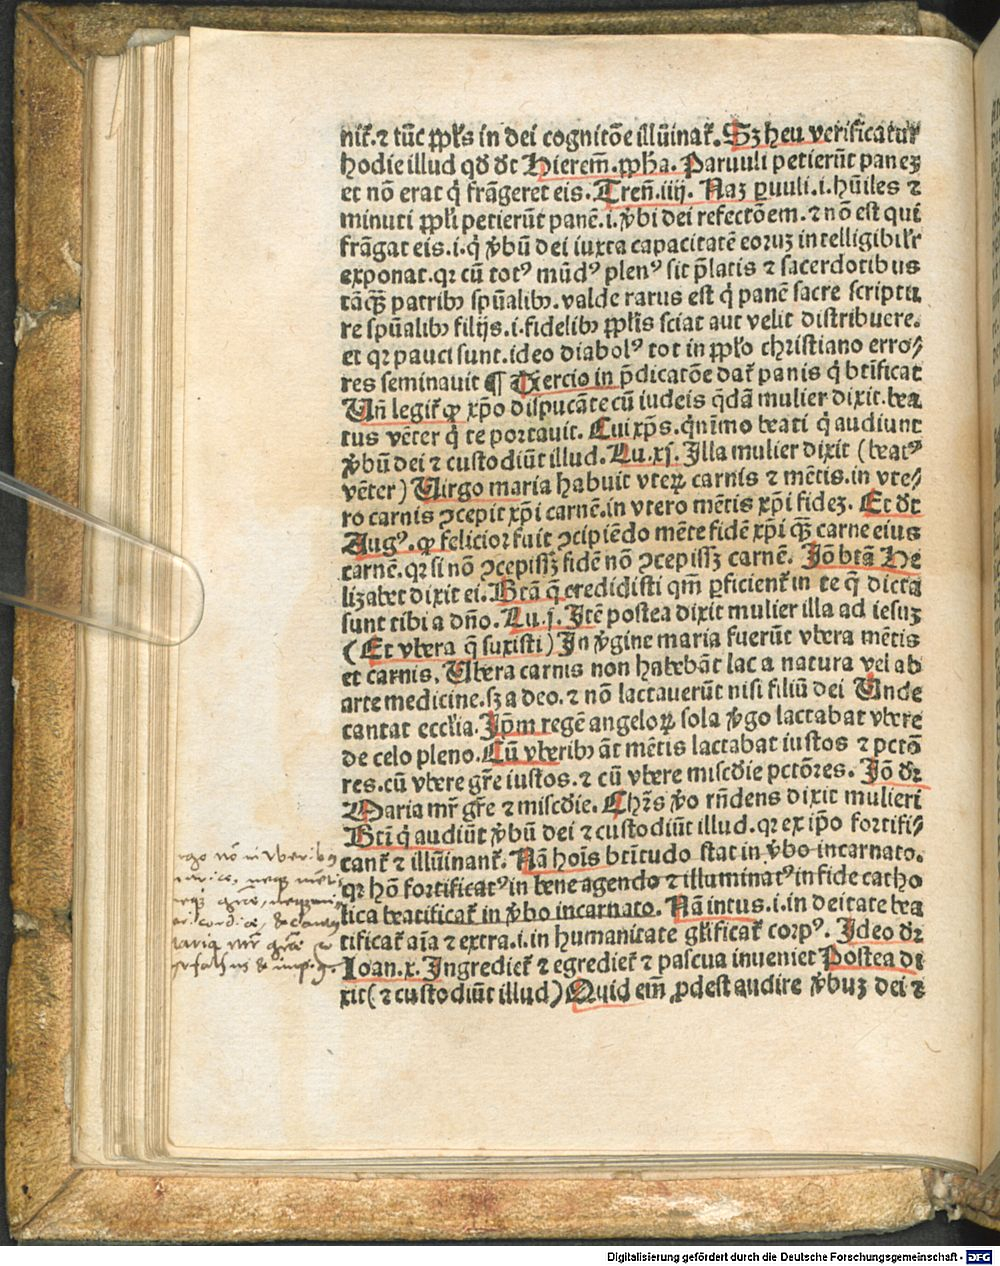 nit᷑.⁊ tūc ꝓpl̓s in dei cognitōe illūinat᷑.Sꝫ heu verificatur
hodie illud qd̄ dt̄ Hierem̄.ꝓph̓a.Paruuli petierūt panez
et nō erat q̓ frāgeret eis.Tren̄.iiij. Naz ꝑuuli.i.hūiles ⁊
minuti ꝓpl̓i petierūt panē.i.v̓bi dei refectōem.⁊ nō est qui
frāgat eis.i.q̓ v̓bū dei iuxta capacitatē eoruz intelligibil̓r
exponat.qꝛ cū totꝰ mūdꝰ plenꝰ sit p̄latis ⁊ sacerdotibus
tāqꝫ̄ patribꝫ spūalibꝫ.valde rarus est q̓ panē sacre scriptu
re spūalibꝫ filijs.i.fidelibꝫ ꝓpl̓is sciat aut velit distribuere.
et qꝛ pauci sunt.ideo diabolꝰ tot in ꝓpl̓o christiano erro/
res seminauit ¶ Tercio in p̄dicatōe dat᷑ panis q̓ btīficat
Un̄ legit᷑ ꝙ xp̄o disputāte cū iudeis q̄dā mulier dixit.bea
tus vēter q̓ te portauit. Cui xp̄s.q̓nīmo beati q̓ audiunt
v̓bū dei ⁊ custodiūt illud.Lu.xj. Illa mulier dixit (beatꝰ
vēter) Uirgo maria habuit vteꝝ carnis ⁊ mētis.in vte/
ro carnis ꝯcepit xp̄i carnē.in vtero mētis xp̄i fidez. Et dt̄
Augꝰ.ꝙ felicior fuit ꝯcipiēdo mēte fidē xp̄i qꝫ̄ carne eius
carnē.qꝛ si nō ꝯcepissꝫ fidē nō ꝯcepissꝫ carnē. Iō btā̄ He
lizabet dixit ei.Btā q̄ credidisti qm̄ ꝑficient᷑ in te q̄ dicta
sunt tibi a dn̄o. Lu.j. Itē postea dixit mulier illa ad iesuz
(Et vbera q̄ suxisti) In v̓gine maria fuerūt vbera mētis
et carnis. Ubera carnis non habebāt lac a natura vel ab
arte medicine.sꝫ a deo.⁊ nō lactauerūt nisi filiū dei Unde
cantat eccl̓ia.Ip̄m regē angeloꝝ sola v̓go lactabat vbere
de celo pleno.Cū vberibꝫ āt mētis lactabat iustos ⁊ pctō
res.cū vbere gr̄e iustos.⁊ cū vbere miscd̓ie pctōres. Iō dr̄
Maria mr̄ gr̄e ⁊ miscd̓ie. Chr̄s v̓o rn̄dens dixit mulieri
Btī q̓ audiūt v̓bū dei ⁊ custodiūt illud.qꝛ ex ip̄o fortifi/
cant᷑ ⁊ illūinant᷑. Nā hoīs btītudo stat in v̓bo incarnato.
qꝛ hō fortificatꝰ in bene agendo ⁊ illuminatꝰ in fide catho
lica beatificat᷑ in v̓bo incarnato. Nā intus.i.in deitate bea
tificat᷑ aīa ⁊ extra.i.in humanitate gl̓ificat᷑ corpꝰ. Ideo dr̄
Ioan.x. Ingrediet᷑ ⁊ egrediet᷑ ⁊ pascua inueniet Postea di
xit(⁊ custodiūt illud) Quid em̄ ꝓdest audire v̓buz dei ⁊
Digitalisierung gefördert durch die Deutsche Forschungsgemeinschaft - DFG